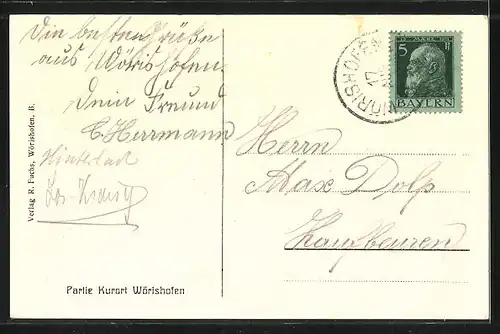 Die besten Grüße
aus Wörishofen.
Dein Freund
E. Herrmann
Verlag R. Fuchs, Wörishofen, B.
Partie Kurort Wörishofen
WÖRISHOFEN
5
BAYERN
Herrn
Max Dolp
Kaufbeuren